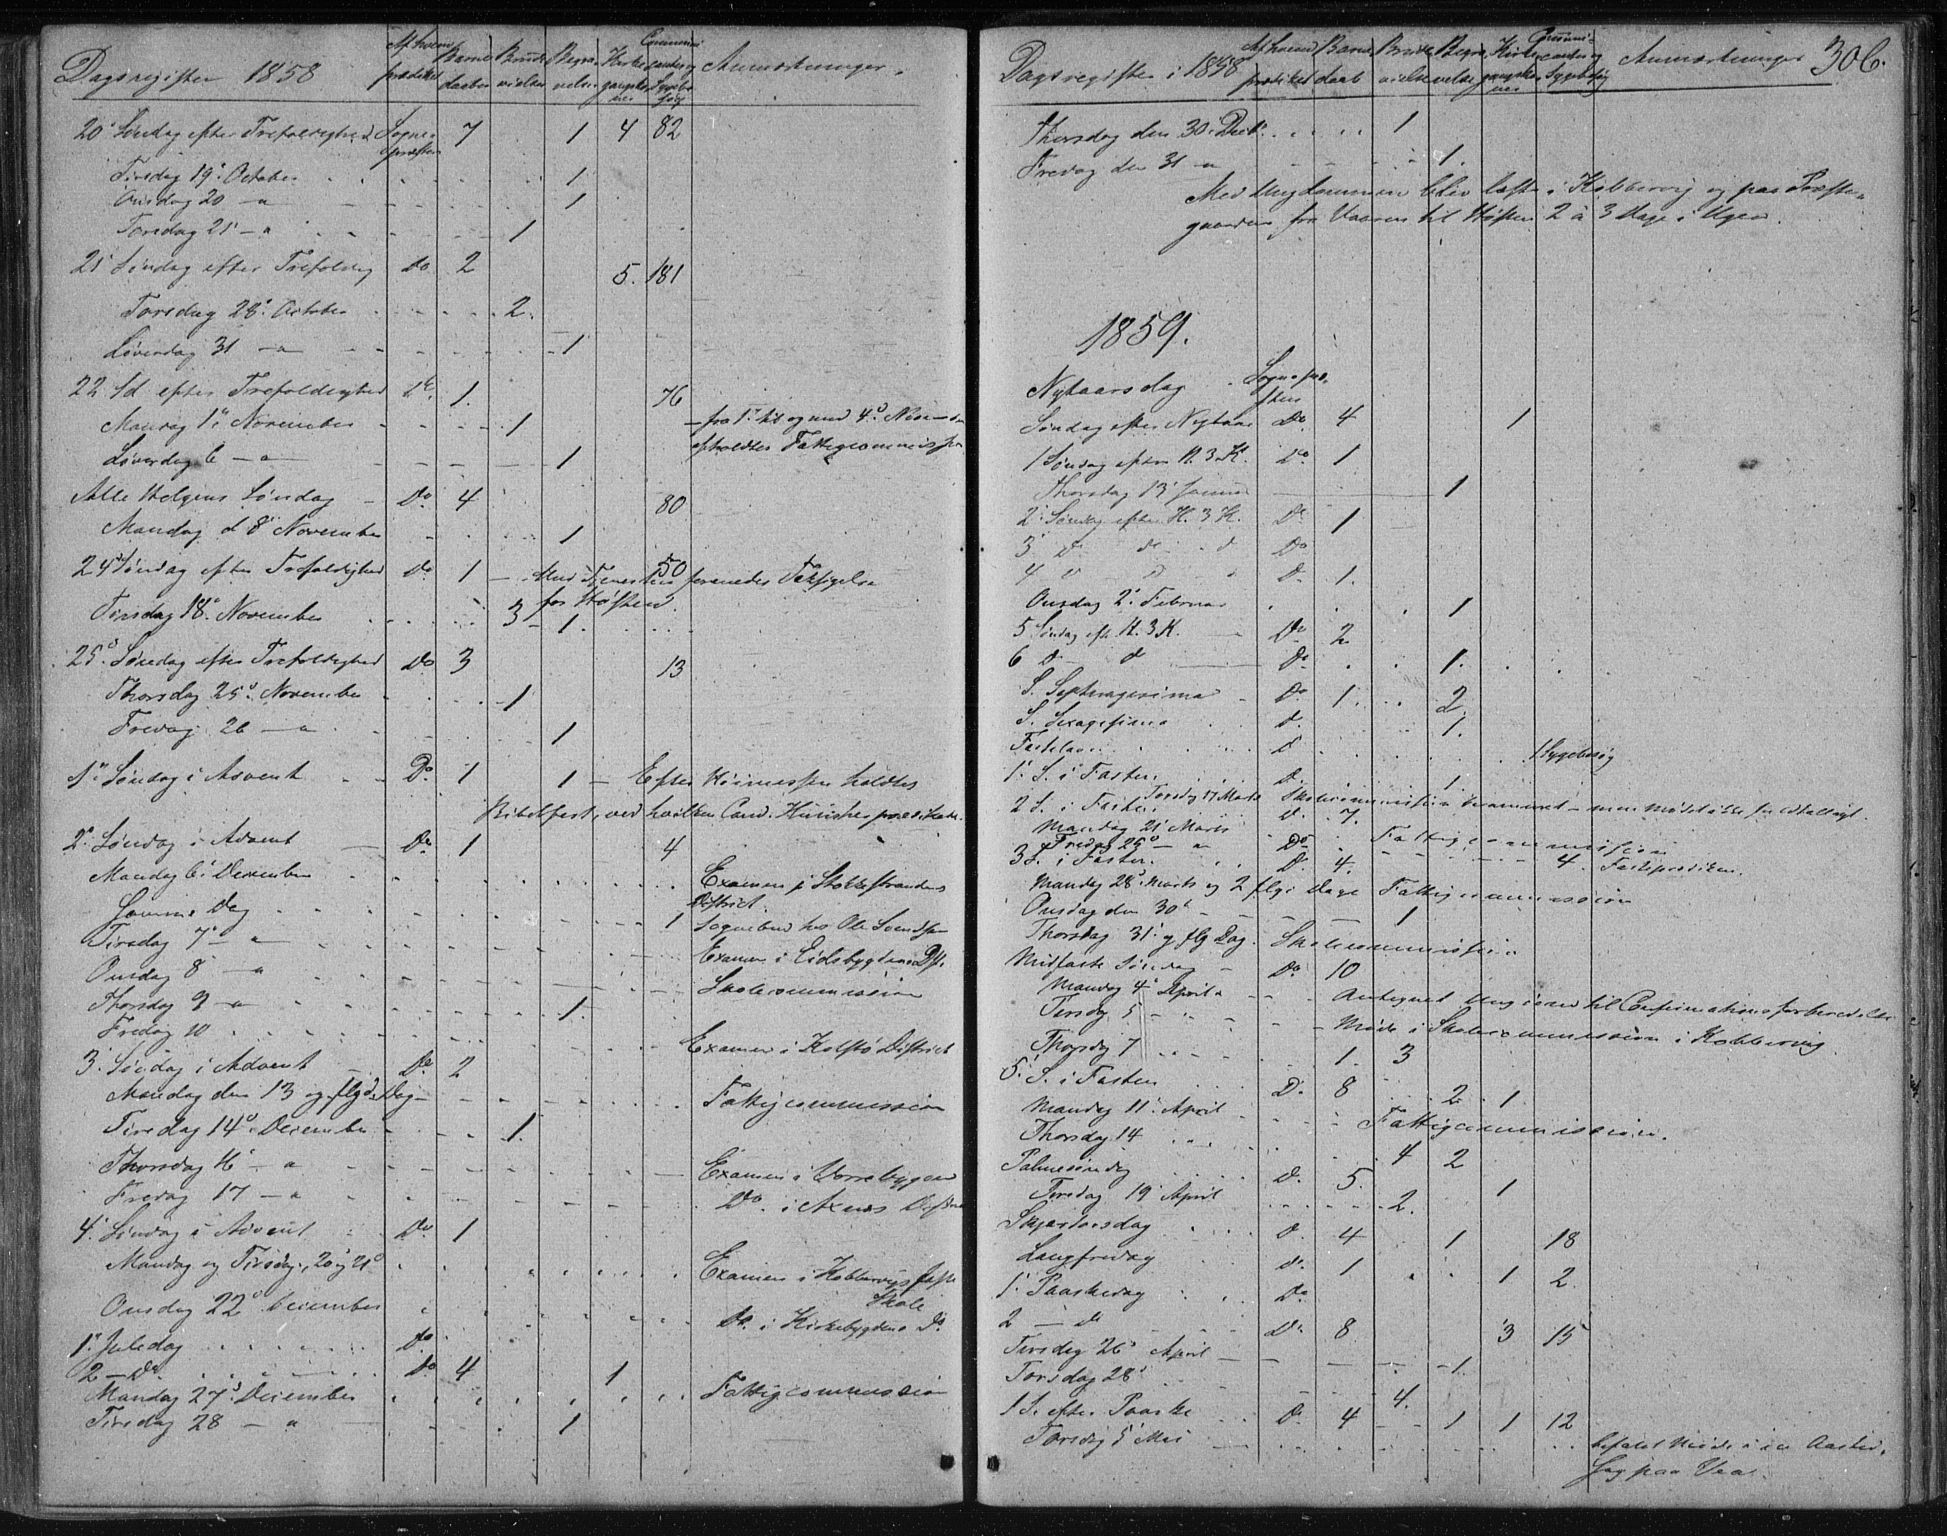 Dagsregister 1858
Af hvem prædiket
Barne daaber
Brude vielser
Begra velser
Kirke gangsko ner
Communi canter og Sygebe søg
Anmærkninger.
20 Søndag efter Trefoldighed Sogne præsten 7 1 4 82
Tirsdag 19 October 1
Onsdag 20 - " 1
Torsdag 21 - " 1
21 Søndag efter Trefoldig Do 2 5. 181
Torsdag 28 October 2.
Løverdag 31 - " 1
22 Sd efter Trefoldighed Do. 1. 76
Mandag 1 November 1 - fra 1 til og med 4
Løverdag 6 - " 1 afholdtes Fattigcommission
Alle Helgens Søndag - Do. 4 80
Mandag d 8 November 1
24 Søndag efter Trefoldighed Do. 1 - Med Tjenesten forenedes Taksigelse 50
for Høsten.
Tirsdag 18 November 3 - 1.
25 Søndag efter Trefoldighed Do 3 13
Thorsdag 25 November 1
Fredag 26 - " 1
1 Søndag i Advent Do. 1 1 - Efter Høimessen holdtes
Bibelfest, ved hvilken Cand.
2 Søndag i Advent Do 1 4
Mandag 6 December Examen i Stokkestrandens
District.
Samme Dag 1 Sognebud hos Ole Svendsen
Tirsdag 7 - " Examen i Eidsbygdens
Onsdag 8 - " Skolecommission
Thorsdag 9 - " 1.
Fredag 10 Examen i Kolstø District
3. Søndag i Advent Do 2
Mandag den 13 og flgd. Dag - Fattigcommission
Tirsdag 14 December 1.
Thorsdag 16 - " Examen i
Fredag 17 - " Do. i
4. Søndag i Advent Do. 1
Mandag og Tirsdag, 20 og 21 Examen i Kobbervigs faste
Skole
Onsdag 22 December Do. i Kirkebygdens Do.
1 Juledag Do.
2 - Do. Do 4 1
Mandag 27 December Fattigcommission
Tirsdag 28 - " 1
Dagsregister i 1858
Af hvem prædiket
Barne daab
Brude vielse
Begra velse
Kirke gangsko ner
Communi canter og Sygebesøg
Anmærkninger
306.
Thorsdag den 30 Decb. 1
Fredag den 31 - " 1.
Med Ungdommen blev læst i Kobbervig og paa Præste-
gaarden fra Vaaren til Høsten 2 à 3 Dage i Ugen.
1859.
Nytaarsdag Sognepræ-
sten
Søndag efter Nytaar Do. 4 1
1 Søndag efter H. 3 K. Do 1
Thorsdag 13 Januar 1
2 Søndag efter H. 3 K. Do 1
3 d do d Do
4 Do. 1.
Onsdag 2 Februar 1
5 Søndag eft. H. 3 K. Do 2
6 d - d Do. 1.
S. Septuagesima Do 1. 2.
S. Sexagesima Do. 1.
Fastelavn D 1 Sygebesøg
1 S. i Fasten. D. 1.
Torsdag 17 Marts Skolecommission
2 S. i Fasten. D. 7.
Mandag 21 Marts Fattigcommission
Fredag 25 - " Do
3 S. i Fasten. D. 4. 4. Fasteprædiken.
Mandag 28 Marts og 2 flg. Dage Fattigcommission
Onsdag den 30 1
Thorsdag 31 og flg Dag. Skolecommission
Midfaste Søndag - Do 10
Mandag 4 April Antegnet Ungdom til Confirmationsforberedelse
Tirsdag 5 - Møde i Skolecommission i Kobbervig
Thorsdag 7 1. 3
5. S. i Fasten D. 8 2 1.
Mandag 11 April Fattigcommission.
Thorsdag 14 4 2
Palmesøndag D. 5. 1
Tirsdag 19 April 2.
Skjærtorsdag D. 4 1 18
Langfredag Do. 1 1 2.
1 Paaskedag Do
2 - d Do. 8 3 15
Tirsdag 26 April 1.
Torsdag 28 4.
1 S. efter Paaske D. 4 1 1 12
Torsdag 5 Mai